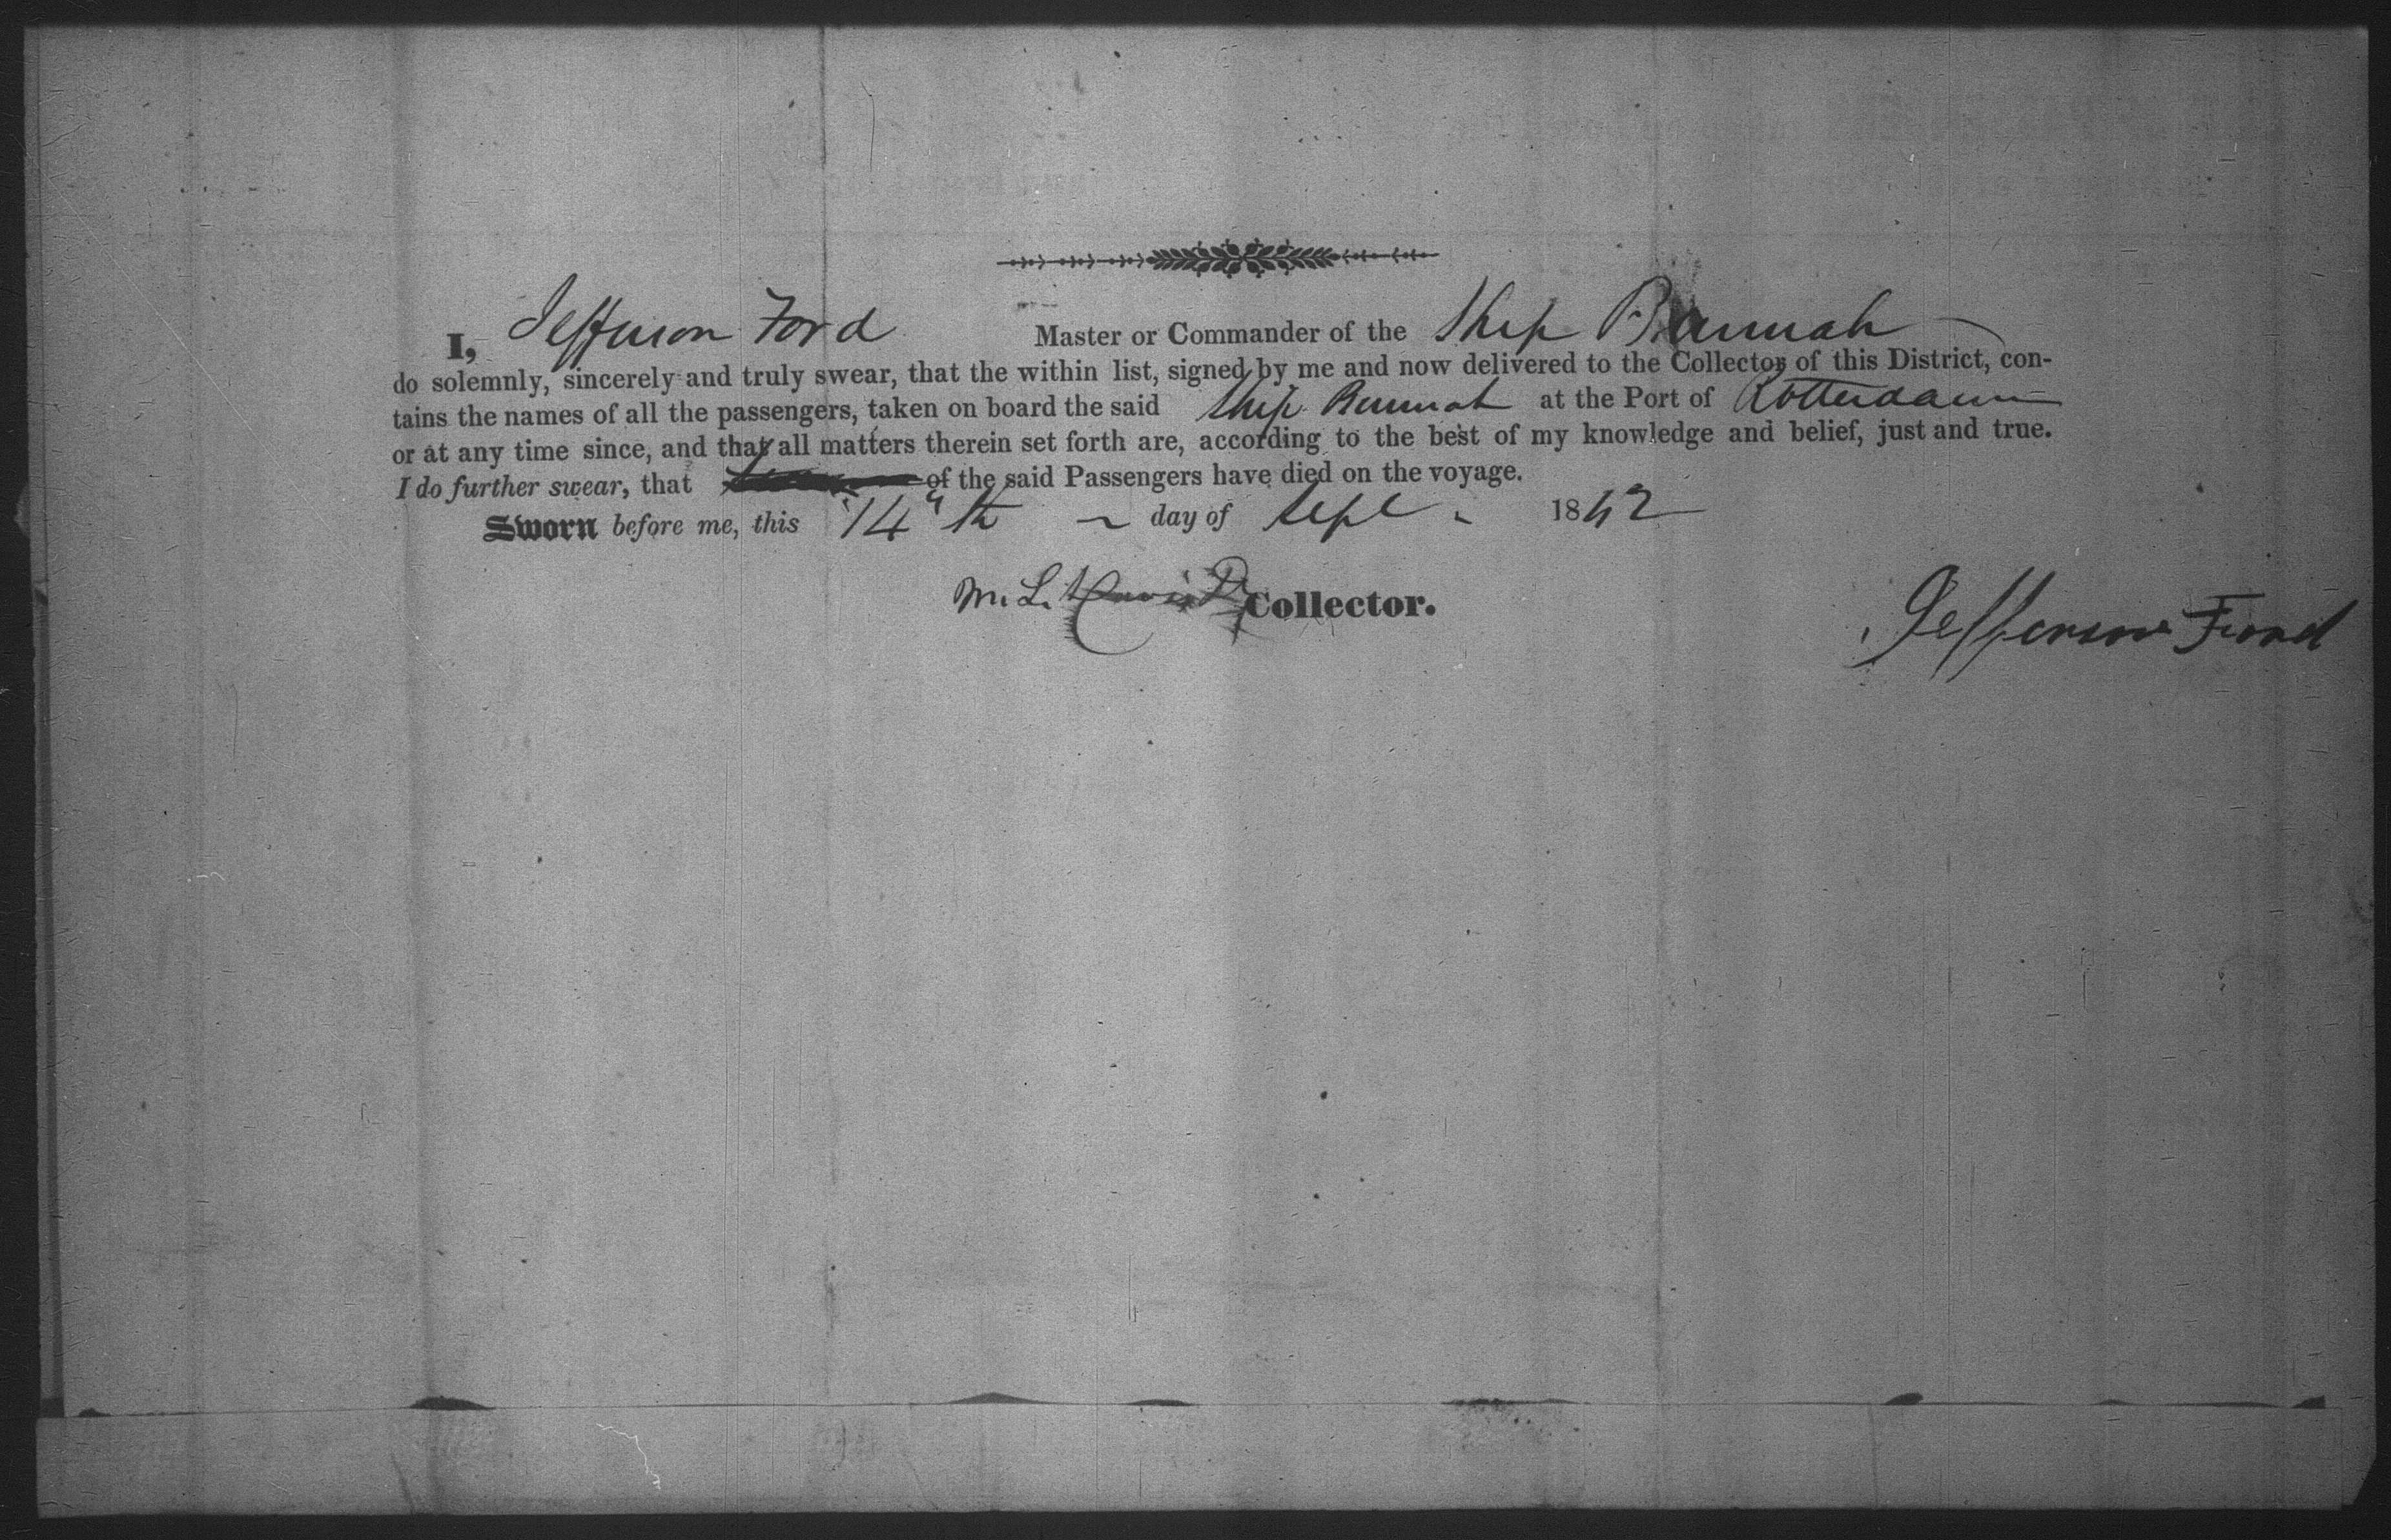 I, Jefferson Ford Master or Commander of the Ship
do solemnly, sincerely and truly swear, that the within list, signed by me and now delivered to the Collector of this District, con-
tains the names of all the passengers, taken on board the said Ship at the Port of Rotterdam
or at any time since, and that all matters therein set forth are, according to the best of my knowledge and belief, just and true.
I do further swear, that of the said Passengers have died on the voyage.
Sworn before me, this 14th day of Sept. 18
M. L. Collector.
Jefferson Ford